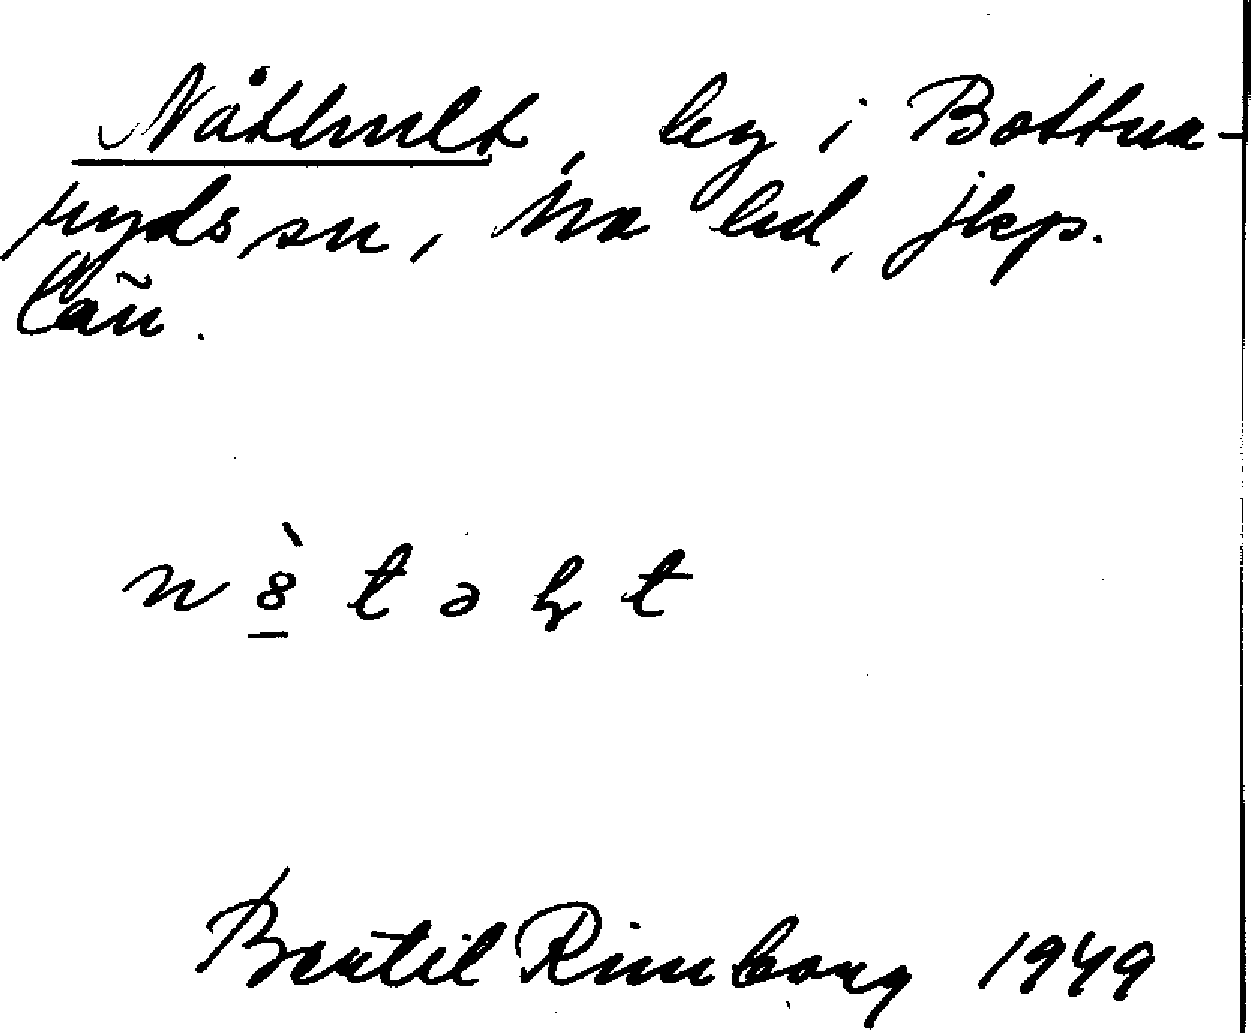 Nåthult, by i Bottna-
ryds sn, Mo hd, Jkp.
län.
n ò̱ t ə ɫ t
Bertil Rimborg 1949